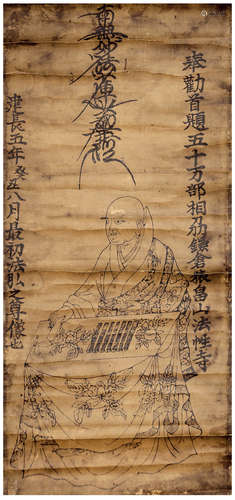 奉勸首題五十万部相刕鎌倉最昌山法性寺
南無妙法蓮華經
建長五年癸丑八月最初法弘之尊像也